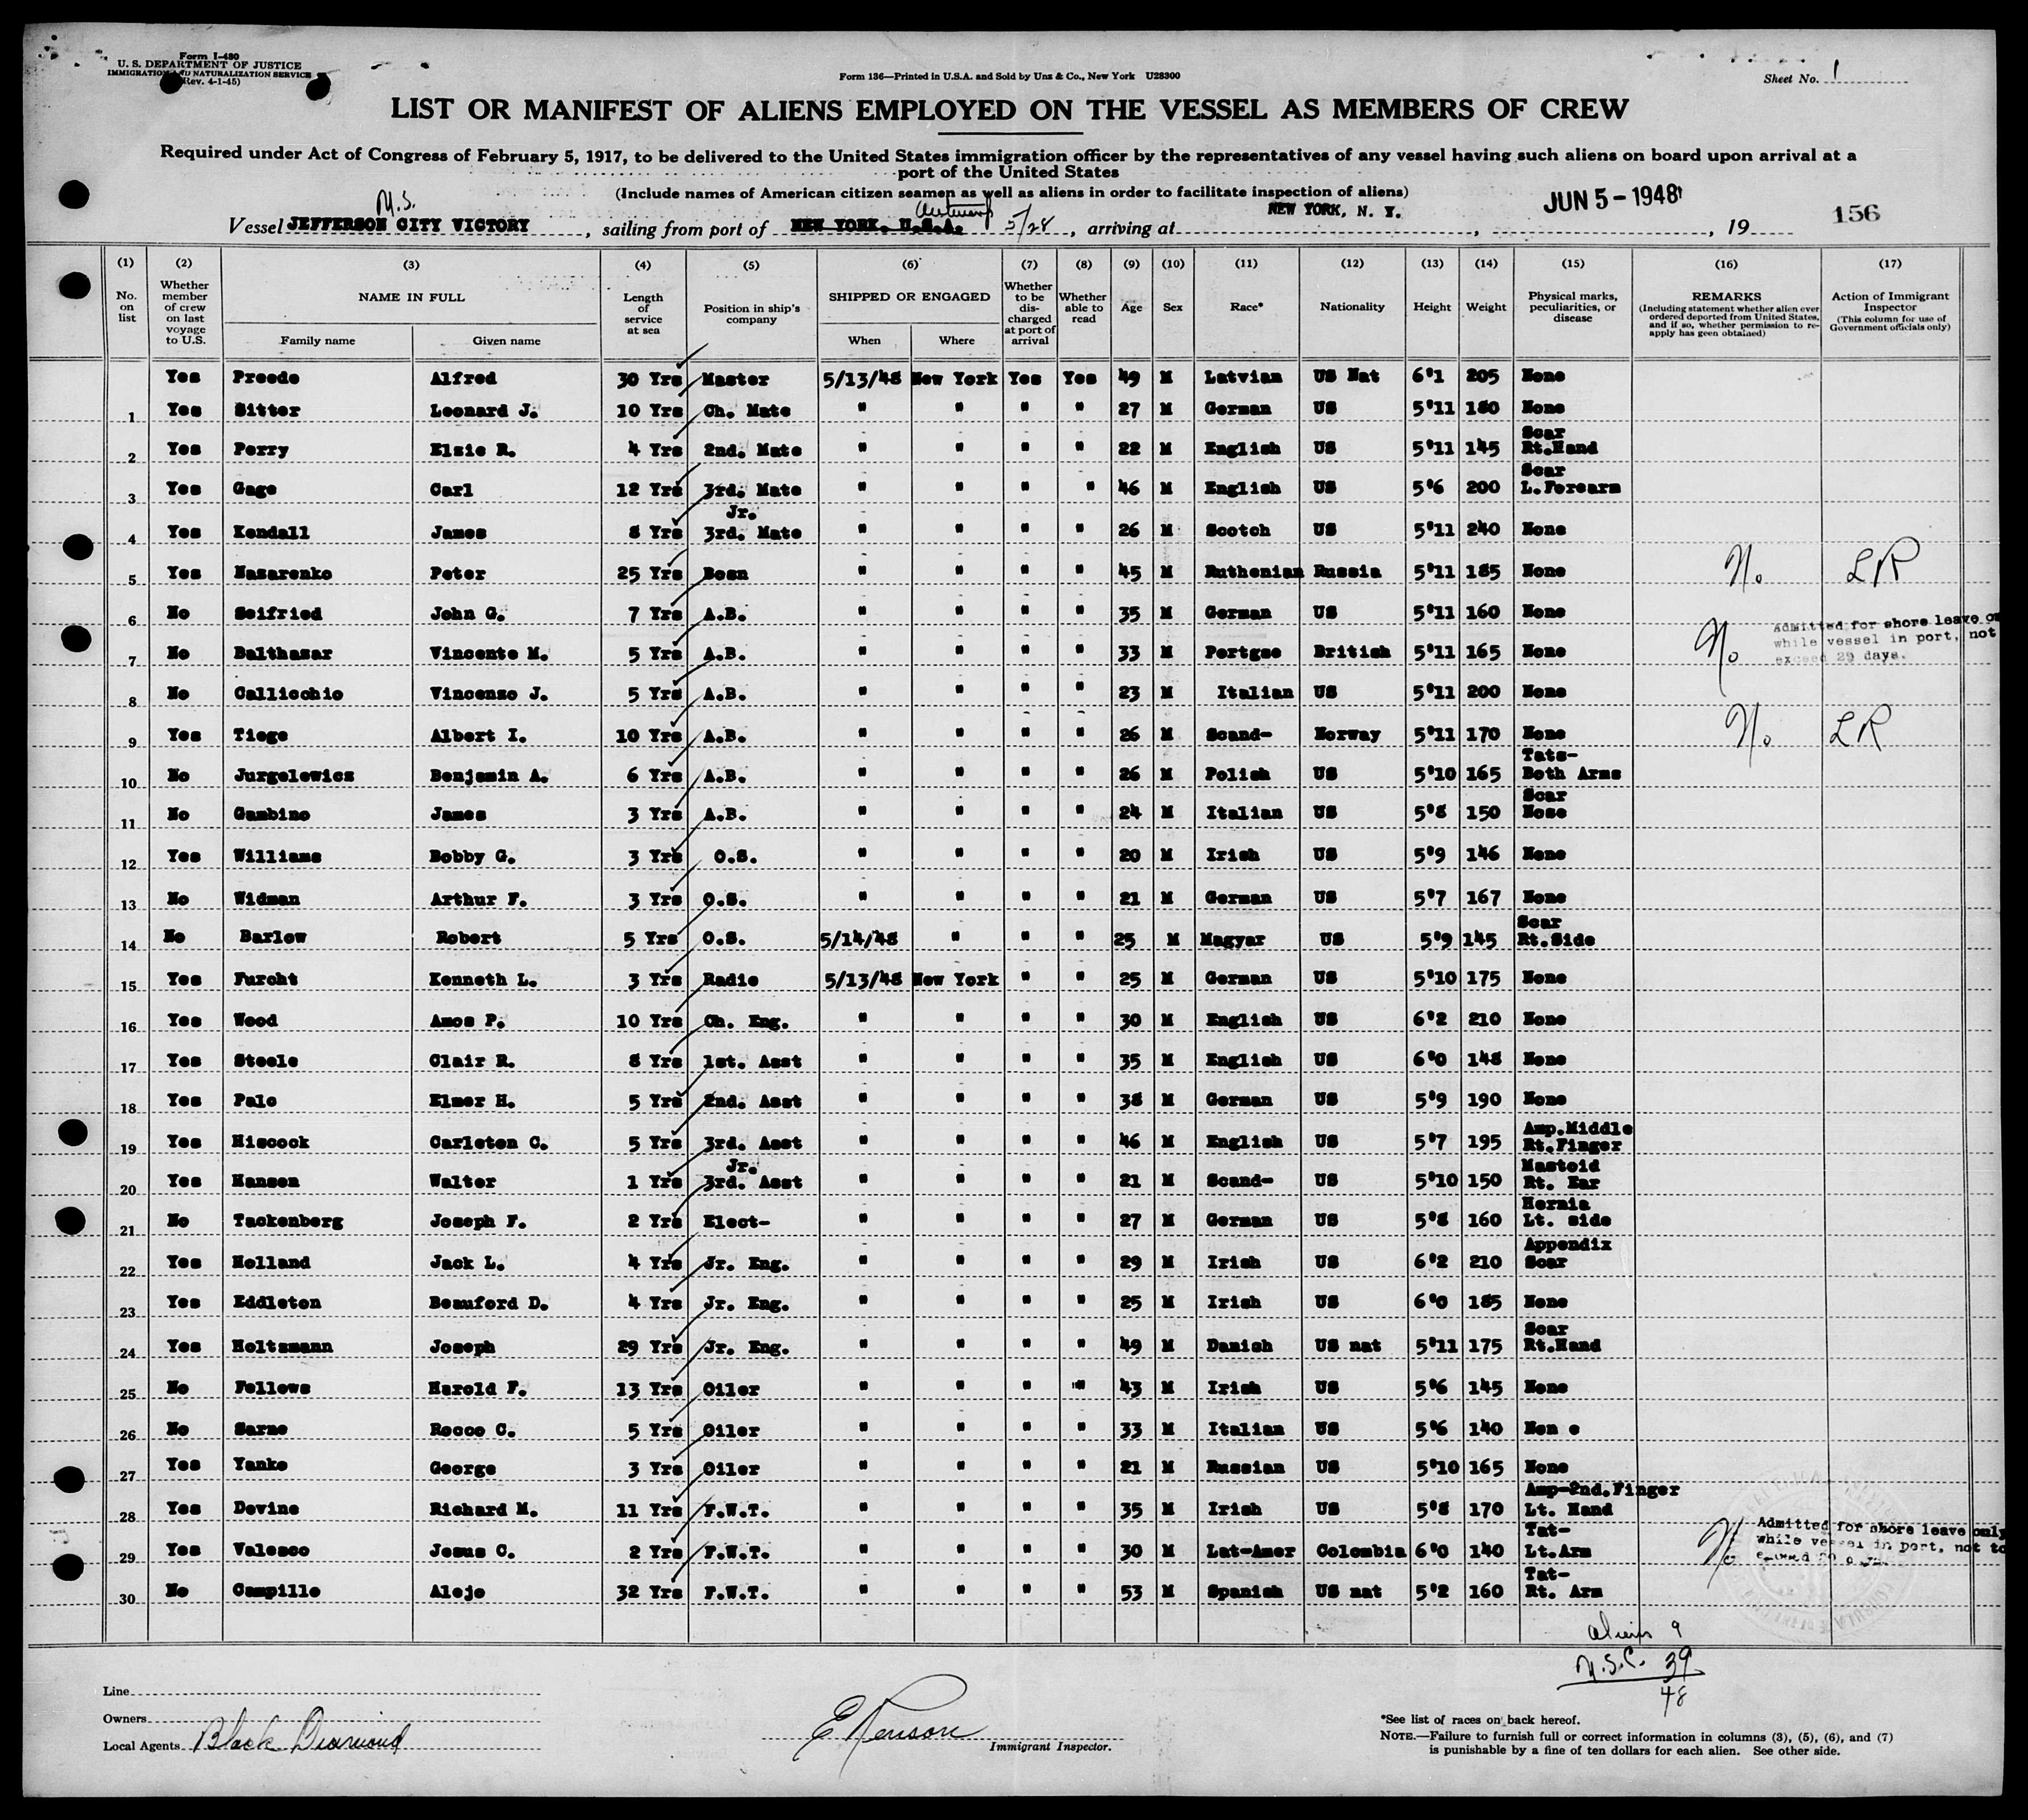 Form I-480
U. S. DEPARTMENT OF JUSTICE
IMMIGRATION AND NATURALIZATION SERVICE
(Rev. 4-1-45)
Form 136—Printed in U.S.A. and Sold by Unz & Co., New York U28300
Sheet No. 1
LIST OR MANIFEST OF ALIENS EMPLOYED ON THE VESSEL AS MEMBERS OF CREW
Required under Act of Congress of February 5, 1917, to be delivered to the United States immigration officer by the representatives of any vessel having such aliens on board upon arrival at a
port of the United States
(Include names of American citizen seamen as well as aliens in order to facilitate inspection of aliens)
M.S. Antwerp JUN 5 - 1948 156
Vessel JEFFERSON CITY VICTORY, sailing from port of NEW YORK, U.S.A. 5/28, arriving at NEW YORK, N. Y., 19
(1) (2) (3) (4) (5) (6) (7) (8) (9) (10) (11) (12) (13) (14) (15) (16) (17)
No. on list
Whether member of crew on last voyage to U.S.
NAME IN FULL
Family name Given name
Length of service at sea
Position in ship's company
SHIPPED OR ENGAGED
When Where
Whether to be discharged at port of arrival
Whether able to read
Age
Sex
Race*
Nationality
Height
Weight
Physical marks, peculiarities, or disease
REMARKS
(Including statement whether alien ever ordered deported from United States, and if so, whether permission to re-apply has geen obtained)
Action of Immigrant Inspector
(This column for use of Government officials only)
Yes Preede Alfred 30 Yrs Master 5/13/48 New York Yes Yes 49 M Latvian US Nat 6'1 205 None
1 Yes Sitter Leonard J. 10 Yrs Ch. Mate " " " " 27 M German US 5'11 180 None
2 Yes Perry Elzie R. 4 Yrs 2nd. Mate " " " " 22 M English US 5'11 145 Scar Rt.Hand
3 Yes Gage Carl 12 Yrs 3rd. Mate " " " " 46 M English US 5'6 200 Scar L.Forearm
4 Yes Kendall James 8 Yrs Jr. 3rd. Mate " " " " 26 M Scotch US 5'11 240 None
5 Yes Nazarenko Peter 25 Yrs Bosn " " " " 45 M Ruthenian Russia 5'11 185 None No LR
6 No Seifried John G. 7 Yrs A.B. " " " " 35 M German US 5'11 160 None
7 No Balthazar Vincente M. 5 Yrs A.B. " " " " 33 M Portgse British 5'11 165 None No Admitted for shore leave on
while vessel in port, not
exceed 29 days.
8 No Callicchio Vincenzo J. 5 Yrs A.B. " " " " 23 M Italian US 5'11 200 None
9 Yes Tiege Albert I. 10 Yrs A.B. " " " " 26 M Scand- Norway 5'11 170 None No LR
10 No Jurgelewicz Benjamin A. 6 Yrs A.B. " " " " 26 M Polish US 5'10 165 Tats- Both Arms
11 No Gambino James 3 Yrs A.B. " " " " 24 M Italian US 5'8 150 Scar Nose
12 Yes Williams Bobby G. 3 Yrs O.S. " " " " 20 M Irish US 5'9 146 None
13 No Widman Arthur F. 3 Yrs O.S. " " " " 21 M German US 5'7 167 None
14 No Barlow Robert 5 Yrs O.S. 5/14/48 " " " 25 M Magyar US 5'9 145 Scar Rt.Side
15 Yes Furcht Kenneth L. 3 Yrs Radio 5/13/48 New York " " 25 M German US 5'10 175 None
16 Yes Wood Amos P. 10 Yrs Ch. Eng. " " " " 30 M English US 6'2 210 None
17 Yes Steele Clair R. 8 Yrs 1st. Asst " " " " 35 M English US 6'0 148 None
18 Yes Palo Elmer H. 5 Yrs 2nd. Asst " " " " 38 M German US 5'9 190 None
19 Yes Hiscock Carleton C. 5 Yrs 3rd. Asst " " " " 46 M English US 5'7 195 Amp.Middle Rt.Finger
20 Yes Hansen Walter 1 Yrs Jr. 3rd. Asst " " " " 21 M Scand- US 5'10 150 Mastoid Rt. Ear
21 No Tackenberg Joseph F. 2 Yrs Elect- " " " " 27 M German US 5'8 160 Hernia Lt. side
22 Yes Holland Jack L. 4 Yrs Jr. Eng. " " " " 29 M Irish US 6'2 210 Appendix Scar
23 Yes Eddleton Beauford D. 4 Yrs Jr. Eng. " " " " 25 M Irish US 6'0 185 None
24 Yes Holtzmann Joseph 29 Yrs Jr. Eng. " " " " 49 M Danish US nat 5'11 175 Scar Rt.Hand
25 No Fellows Harold F. 13 Yrs Oiler " " " " 43 M Irish US 5'6 145 None
26 No Sarno Rocco C. 5 Yrs Oiler " " " " 33 M Italian US 5'6 140 Non e
27 Yes Yanko George 3 Yrs Oiler " " " " 21 M Russian US 5'10 165 None
28 Yes Devine Richard M. 11 Yrs F.W.T. " " " " 35 M Irish US 5'8 170 Amp-2nd.Finger Lt. Hand
29 Yes Valesco Jesus C. 2 Yrs F.W.T. " " " " 30 M Lat-Amer Colombia 6'0 140 Tat- Lt.Arm No Admitted for shore leave only
while vessel in port, not to
30 No Campillo Alejo 32 Yrs F.W.T. " " " " 53 M Spanish US nat 5'2 160 Tat- Rt. Arm
Aliens 9
U.S.C. 39
48
Line
Owners
Local Agents Black Diamond
Immigrant Inspector.
*See list of races on back hereof.
NOTE.—Failure to furnish full or correct information in columns (3), (5), (6), and (7)
is punishable by a fine of ten dollars for each alien. See other side.